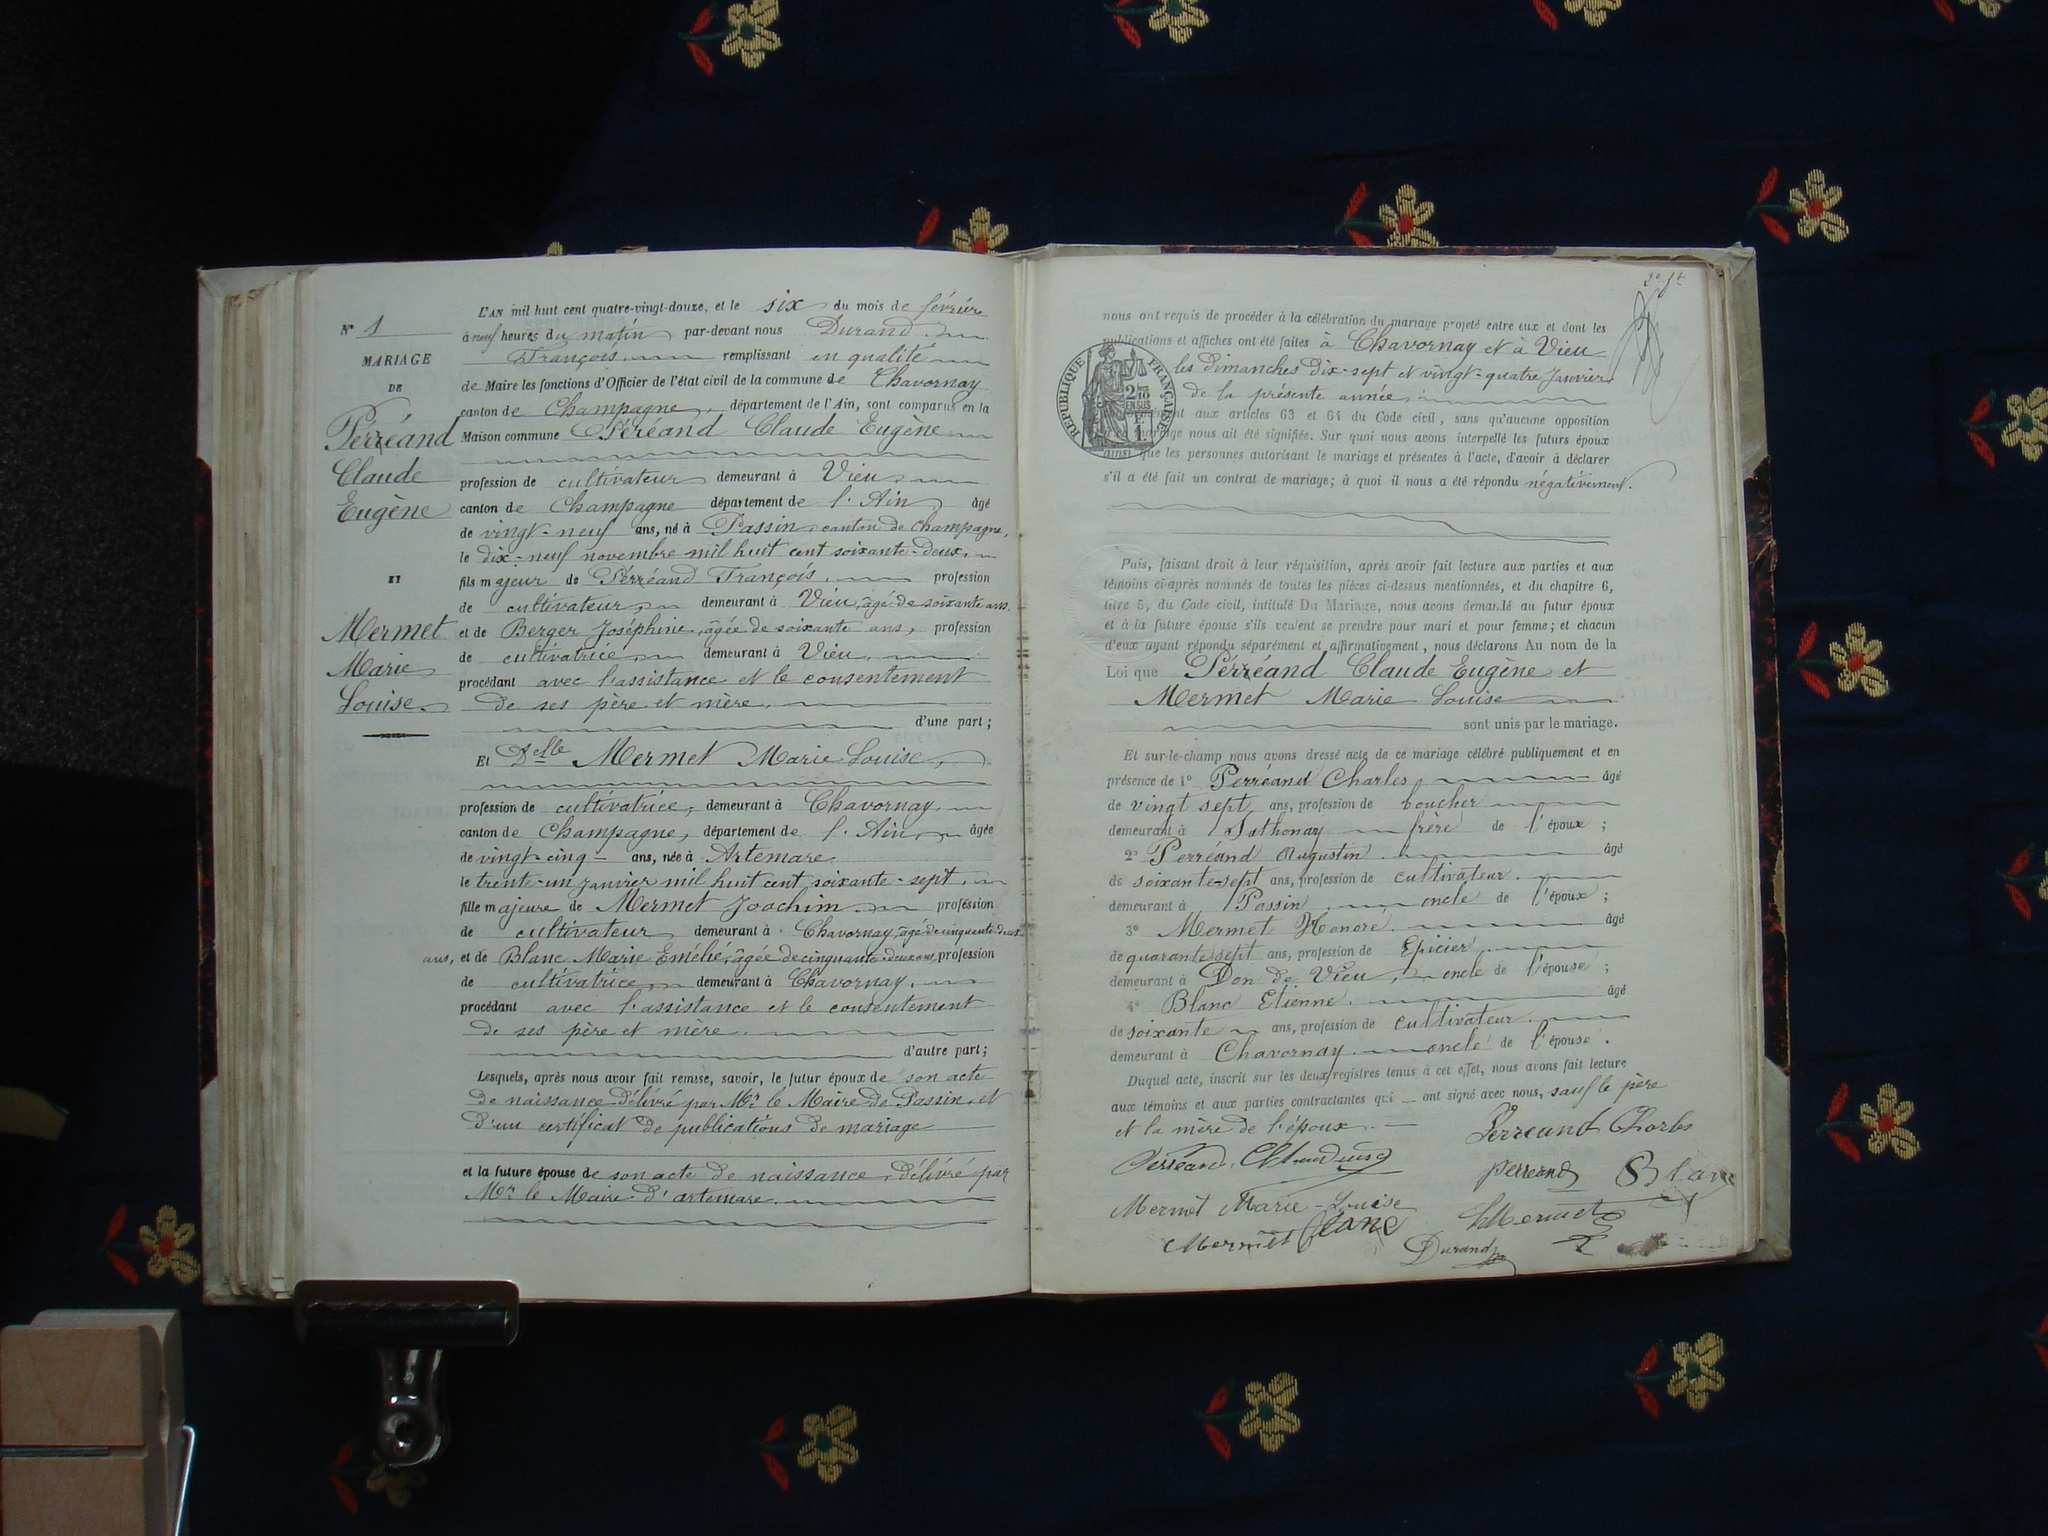 N° 1
MARIAGE
DE
Perréand
Claude
Eugène
ET
Mermet
Marie
Louise
L'AN mil huit cent quatre-vingt-douze, et le six du mois de février
à neuf heures du matin par-devant nous Durand
François remplissant en qualité
de Maire les fonctions d'Officier de l'état civil de la commune de Chavornay
canton de Champagne, département de l'Ain, sont comparus en la
Maison commune Perréand Claude Eugène
profession de cultivateur demeurant à Vieu
canton de Champagne département de l'Ain âgé
de vingt-neuf ans, né à Passin canton de Champagne,
le dix-neuf novembre mil huit cent soixante-deux,
fils majeur de Perréand François, profession
de cultivateur, demeurant à Vieu, âgé de soixante ans,
et de Berger Joséphine, âgée de soixante ans, profession
de cultivatrice demeurant à Vieu
procédant avec l'assistance et le consentement
de ses père et mère,
d'une part;
Et Delle Mermet Marie Louise,
profession de cultivatrice, demeurant à Chavornay,
canton de Champagne, département de l'Ain, âgée
de vingt-cinq ans, née à Artemare
le trente-un janvier mil huit cent soixante-sept,
fille majeure de Mermet Joachim profession
de cultivateur demeurant à Chavornay, âgé de cinquante-deux
ans, et de Blanc Marie Emélié, âgée de cinquante-deux ans, profession
de cultivatrice demeurant à Chavornay,
procédant avec l'assistance et le consentement
de ses père et mère.
d'autre part;
Lesquels, après nous avoir fait remise, savoir, le futur époux de son acte
de naissance délivré par Mr le Maire de Passin, et
d'un certificat de publications de mariage
et la future épouse de son acte de naissance, délivré par
Mr le Maire d'artemare.
nous ont requis de procéder à la célébration du mariage projeté entre eux et dont les
publications et affiches ont été faites à Chavornay et à Vieu
les dimanches dix-sept et vingt-quatre Janvier
de la présente année,
RÉPUBLIQUE FRANÇAISE
2/10 EN SUS
1 F.
aux articles 63 et 64 du Code civil, sans qu'aucune opposition
mariage nous ait été signifiée. Sur quoi nous avons interpellé les futurs époux
ainsi que les personnes autorisant le mariage et présentes à l'acte, d'avoir à déclarer
s'il a été fait un contrat de mariage; à quoi il nous a été répondu négativement.
Puis, faisant droit à leur réquisition, après avoir fait lecture aux parties et aux
témoins ci-après nommés de toutes les pièces ci-dessus mentionnées, et du chapitre 6,
titre 5, du Code civil, intitulé Du Mariage, nous avons demandé au futur époux
et à la future épouse s'ils veulent se prendre pour mari et pour femme; et chacun
d'eux ayant répondu séparément et affirmativement, nous déclarons Au nom de la
Loi que Perréand Claude Eugène et
Mermet Marie Louise
sont unis par le mariage.
Et sur-le-champ nous avons dressé acte de ce mariage célébré publiquement et en
présence de 1° Perréand Charles, âgé
de vingt sept ans, profession de boucher
demeurant à Sathonay frère de l'époux;
2° Perréand Augustin âgé
de soixante-sept ans, profession de cultivateur.
demeurant à Passin oncle de l'époux;
3° Mermet Honoré âgé
de quarante sept ans, profession de Epicier
demeurant à Don de Vieu, oncle de l'épouse;
4° Blanc Etienne. âgé
de soixante ans, profession de cultivateur.
demeurant à Chavornay oncle de l'épouse.
Duquel acte, inscrit sur les deux registres tenus à cet effet, nous avons fait lecture
aux témoins et aux parties contractantes qui ont signé avec nous, sauf le père
et la mère de l'époux.
Perreand Charles
Perréand
perreand Blanc
Mermet Marie-Louise
HMermet
Mermet Blanc
Durand